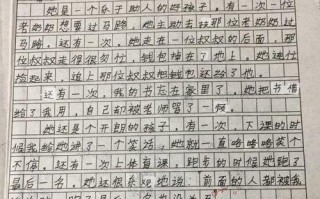 她是一个乐于助人的好孩子。有一次一位
老奶奶想要过马路，她主动去扶那位老奶奶过
马路。还有一次，她走在一位叔叔的后面，那
位叔叔走得很匆忙，钱包掉在了地上。她连忙
捡起来，追上那位叔叔把钱包还给了他。
还有一次，我的书忘在家里了，她把书借
给了我用，自己却被老师骂了一顿。
她还是个开朗的孩子，有一次，下课的时
候我给她讲了一个笑话，她就一直咯咯咯笑个
不停。还有一次上体育课，跑步的时候她跑了
最后一名，她还很乐观地说：前面的人都被我